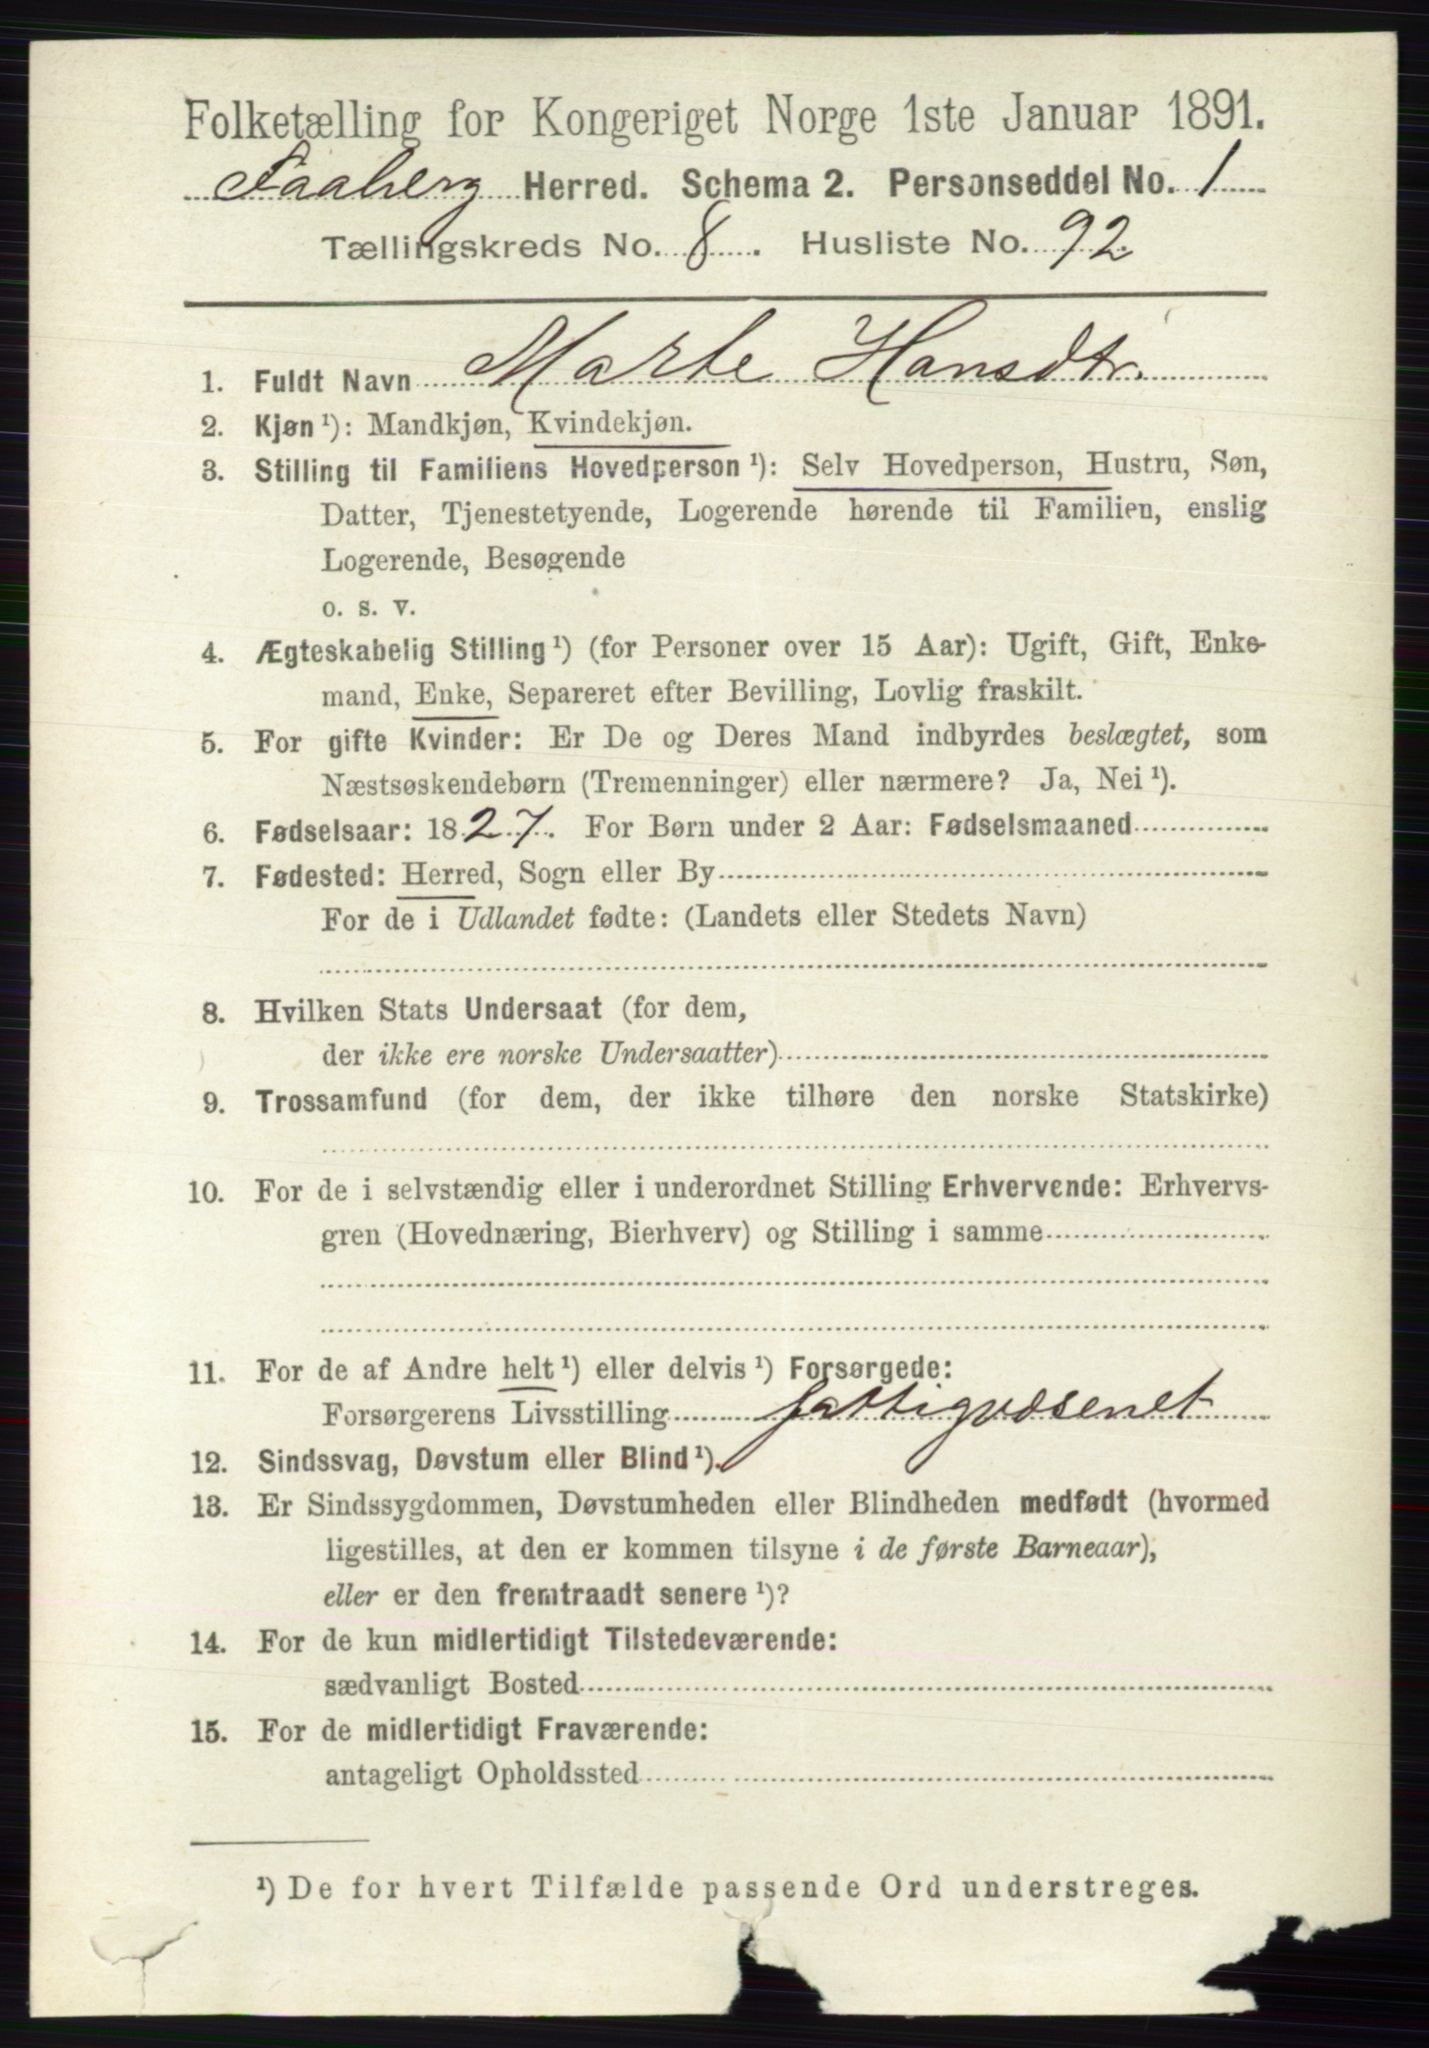 Folketælling for Kongeriget Norge 1ste Januar 1891.
Faaberg Herred. Schema 2. Personseddel No. 1
Tællingskreds No. 8. Husliste No. 92.
1. Fuldt Navn Marte Hansdtr.
2. Kjøn ¹): Mandkjøn, Kvindekjøn.
3. Stilling til Familiens Hovedperson ¹): Selv Hovedperson, Hustru, Søn,
Datter, Tjenestetyende, Logerende hørende til Familien, enslig
Logerende, Besøgende
o. s. v.
4. Ægteskabelig Stilling ¹) (for Personer over 15 Aar): Ugift, Gift, Enke-
mand, Enke, Separeret efter Bevilling, Lovlig fraskilt.
5. For gifte Kvinder: Er De og Deres Mand indbyrdes beslægtet, som
Næstsøskendebørn (Tremenninger) eller nærmere? Ja, Nei ¹).
6. Fødselsaar: 1827. For Børn under 2 Aar: Fødselsmaaned
7. Fødested: Herred, Sogn eller By
For de i Udlandet fødte: (Landets eller Stedets Navn)
8. Hvilken Stats Undersaat (for dem,
der ikke ere norske Undersaatter)
9. Trossamfund (for dem, der ikke tilhøre den norske Statskirke)
10. For de i selvstændig eller i underordnet Stilling Erhvervende: Erhvervs-
gren (Hovednæring, Bierhverv) og Stilling i samme
11. For de af Andre helt ¹) eller delvis ¹) Forsørgede:
Forsørgerens Livsstilling fattigvæsenet
12. Sindssvag, Døvstum eller Blind ¹).
13. Er Sindssygdommen, Døvstumheden eller Blindheden medfødt (hvormed
ligestilles, at den er kommen tilsyne i de første Barneaar),
eller er den fremtraadt senere ¹)?
14. For de kun midlertidigt Tilstedeværende:
sædvanligt Bosted
15. For de midlertidigt Fraværende:
antageligt Opholdssted
¹) De for hvert Tilfælde passende Ord understreges.